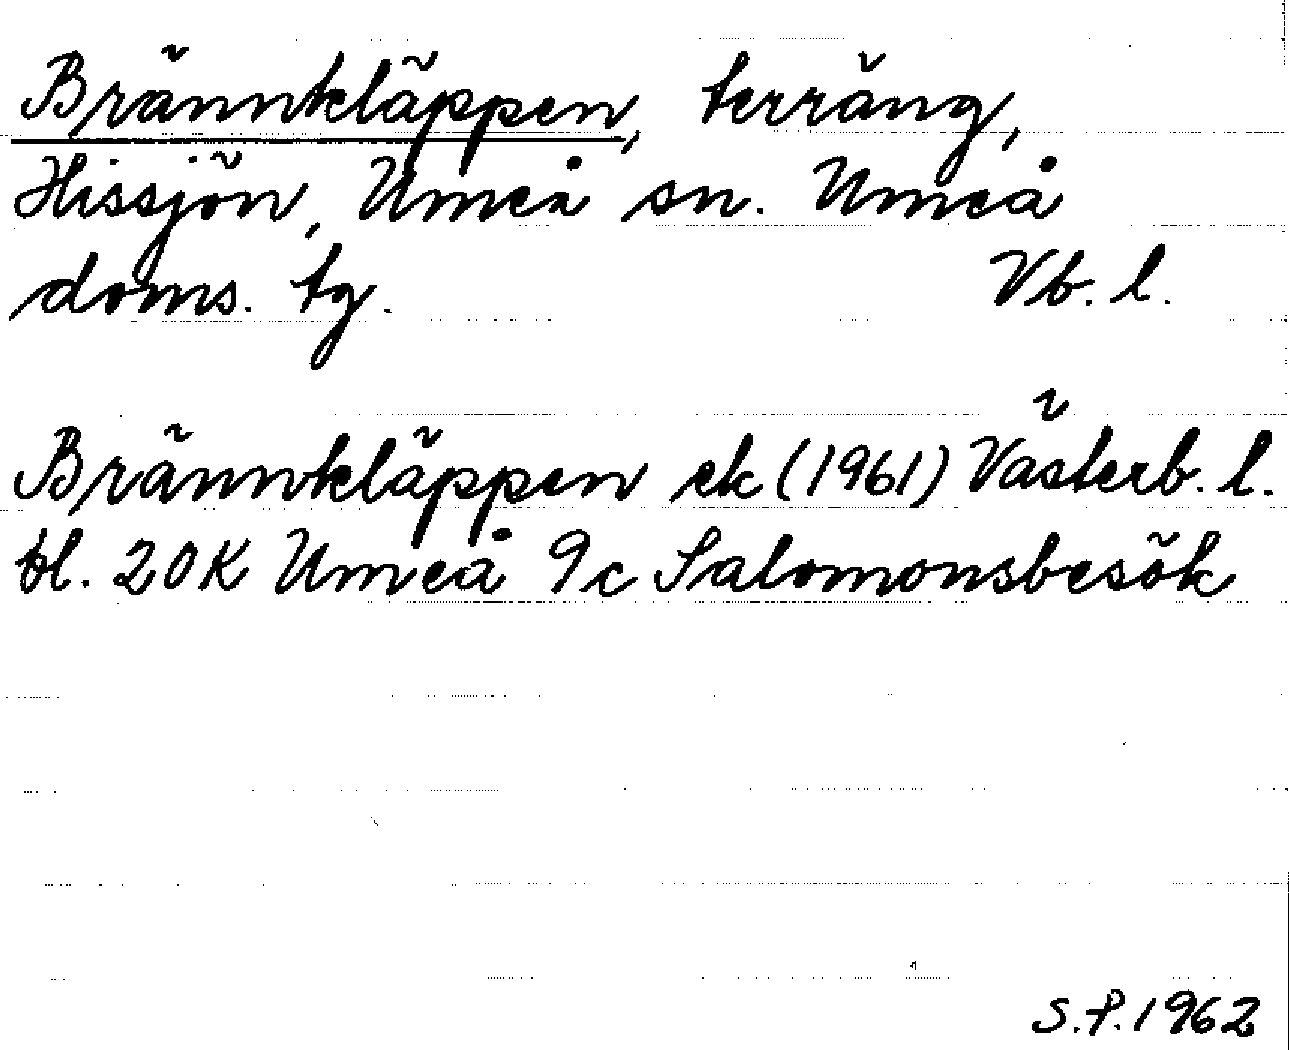 Brännkläppen, terräng,
Hissjön, Umeå sn. Umeå
doms. tg. Vb. l.
Brännkläppen ek (1961) Västerb. l.
bl. 20K Umeå 9c Salomonsbesök
S.P. 1962